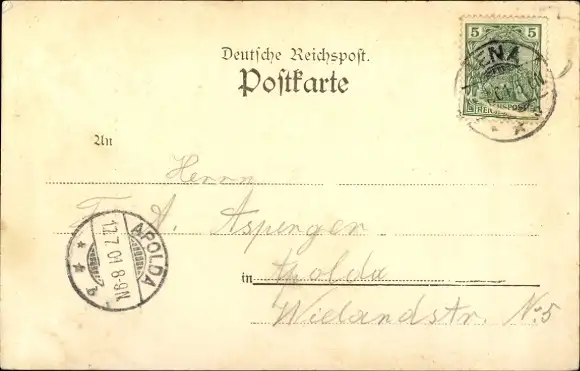 Deutsche Reichspost.
Postkarte
5 5
JENA
REICHSPOST
An
Herrn
F. A. Aspenger
in Apolda
Wielandstr. No 5
APOLDA
17.7.01 8-9N